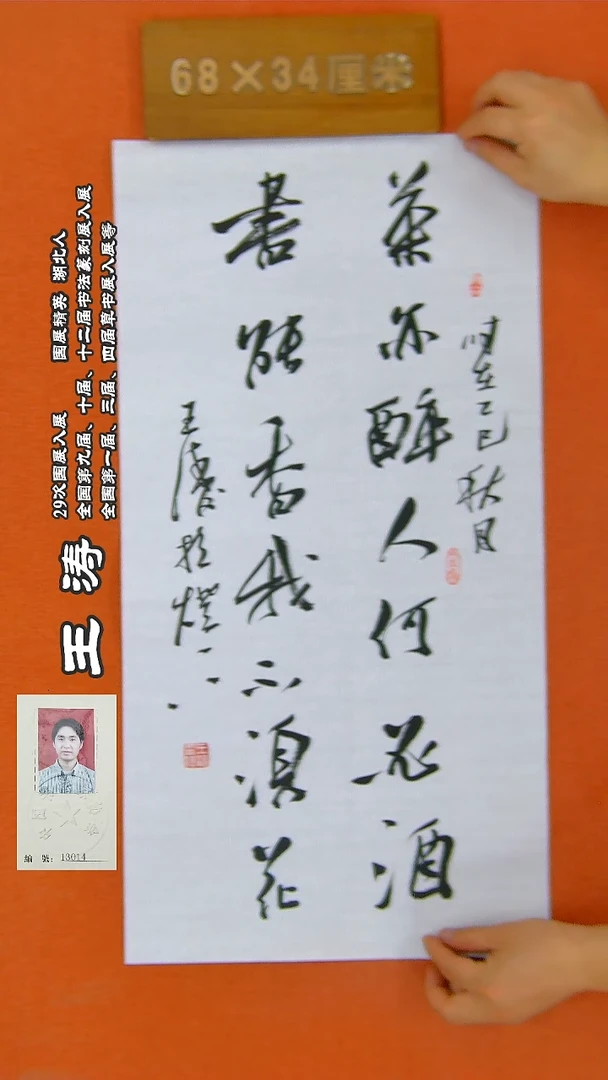 68×34厘米
时在乙巳秋月
茶亦醉人何必酒
書能香我不須花
王濤於燈下
29次国展入展 国展精英 湖北人
全国第九届、十届、十二届书法篆刻展入展
全国第一届、三届、四届草书展入展等
王涛
編號：13014